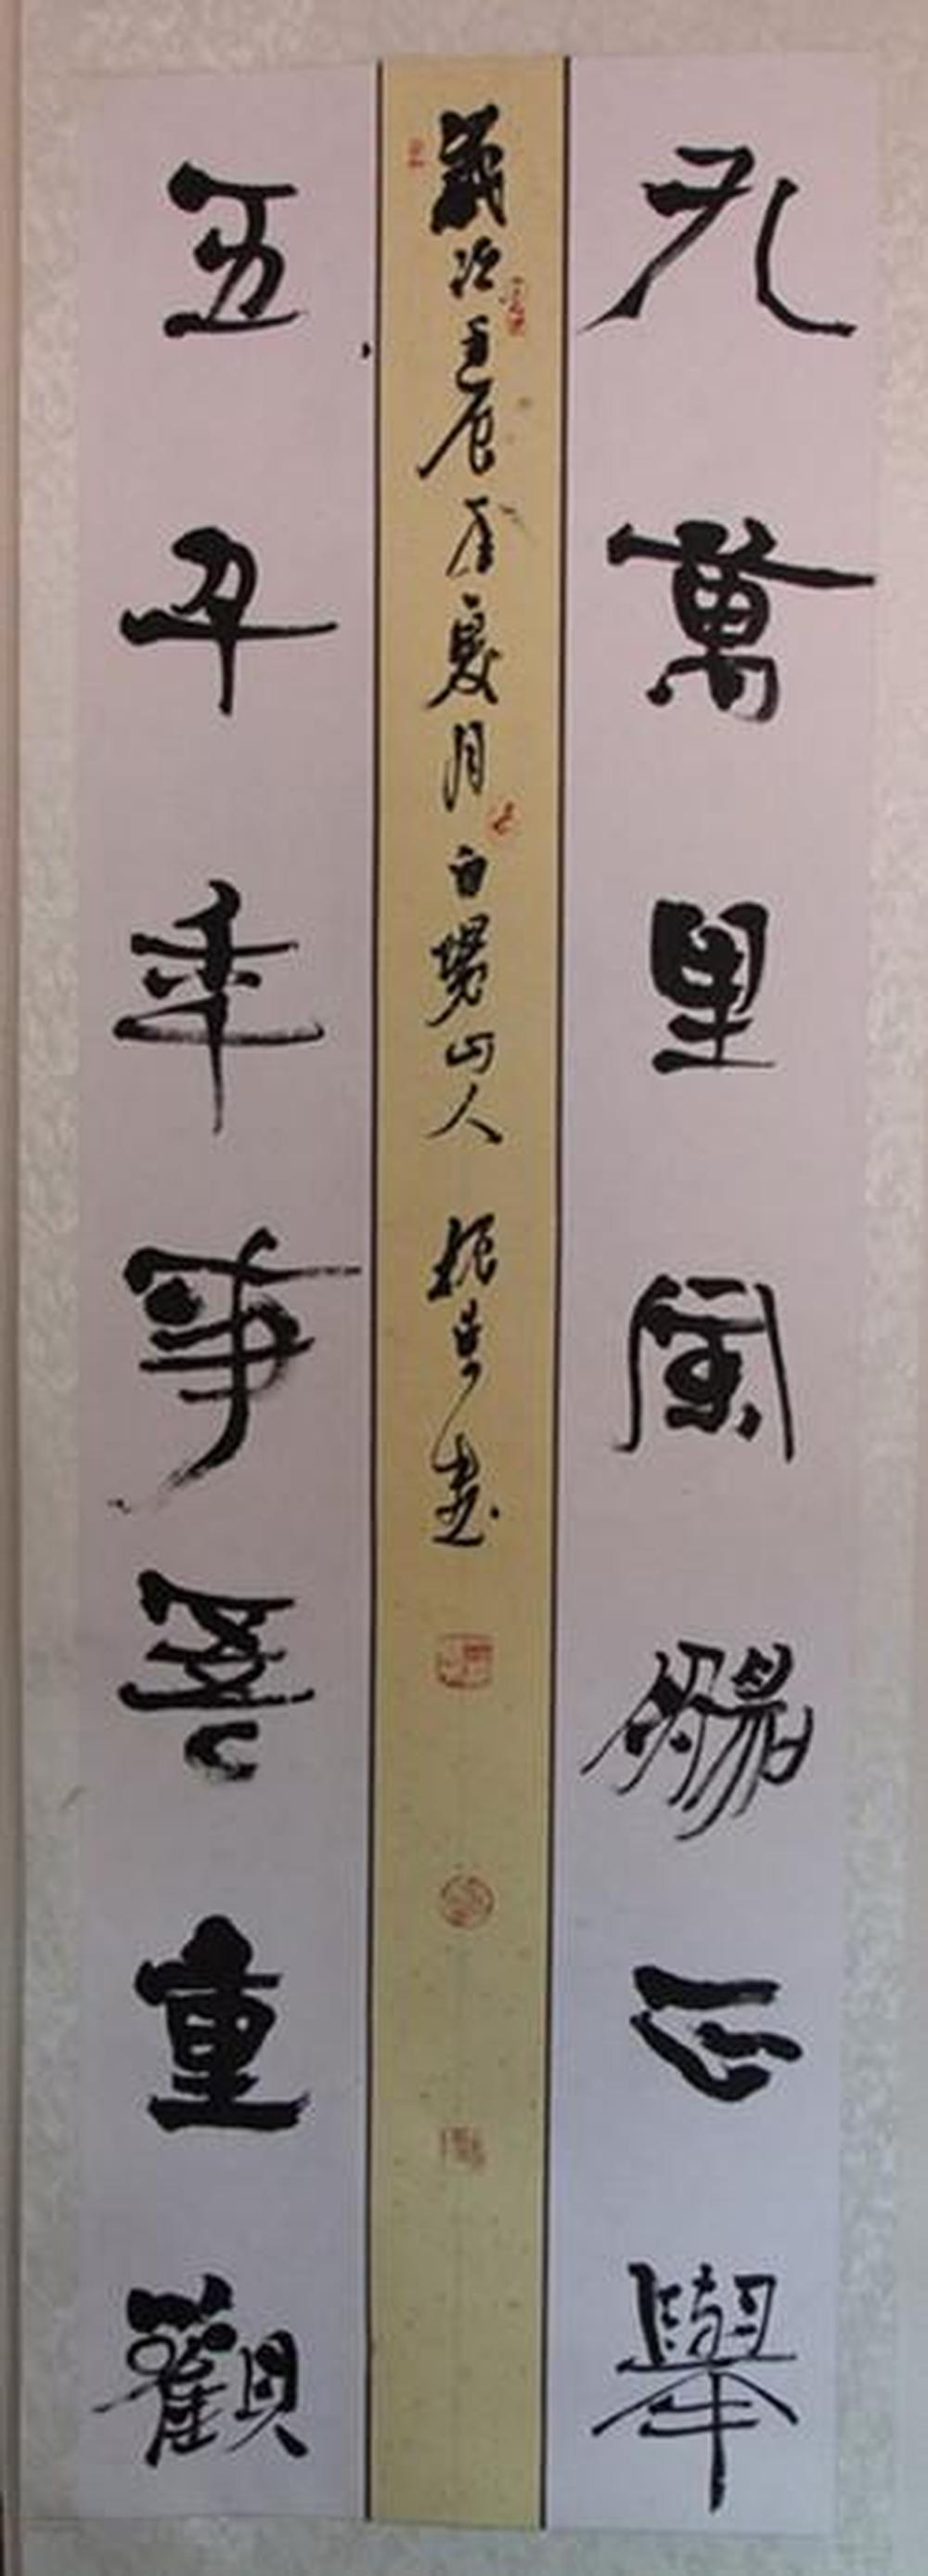 九萬里風鵬正舉
歲次壬辰年夏月白 山人振 書
五千年事吾重觀